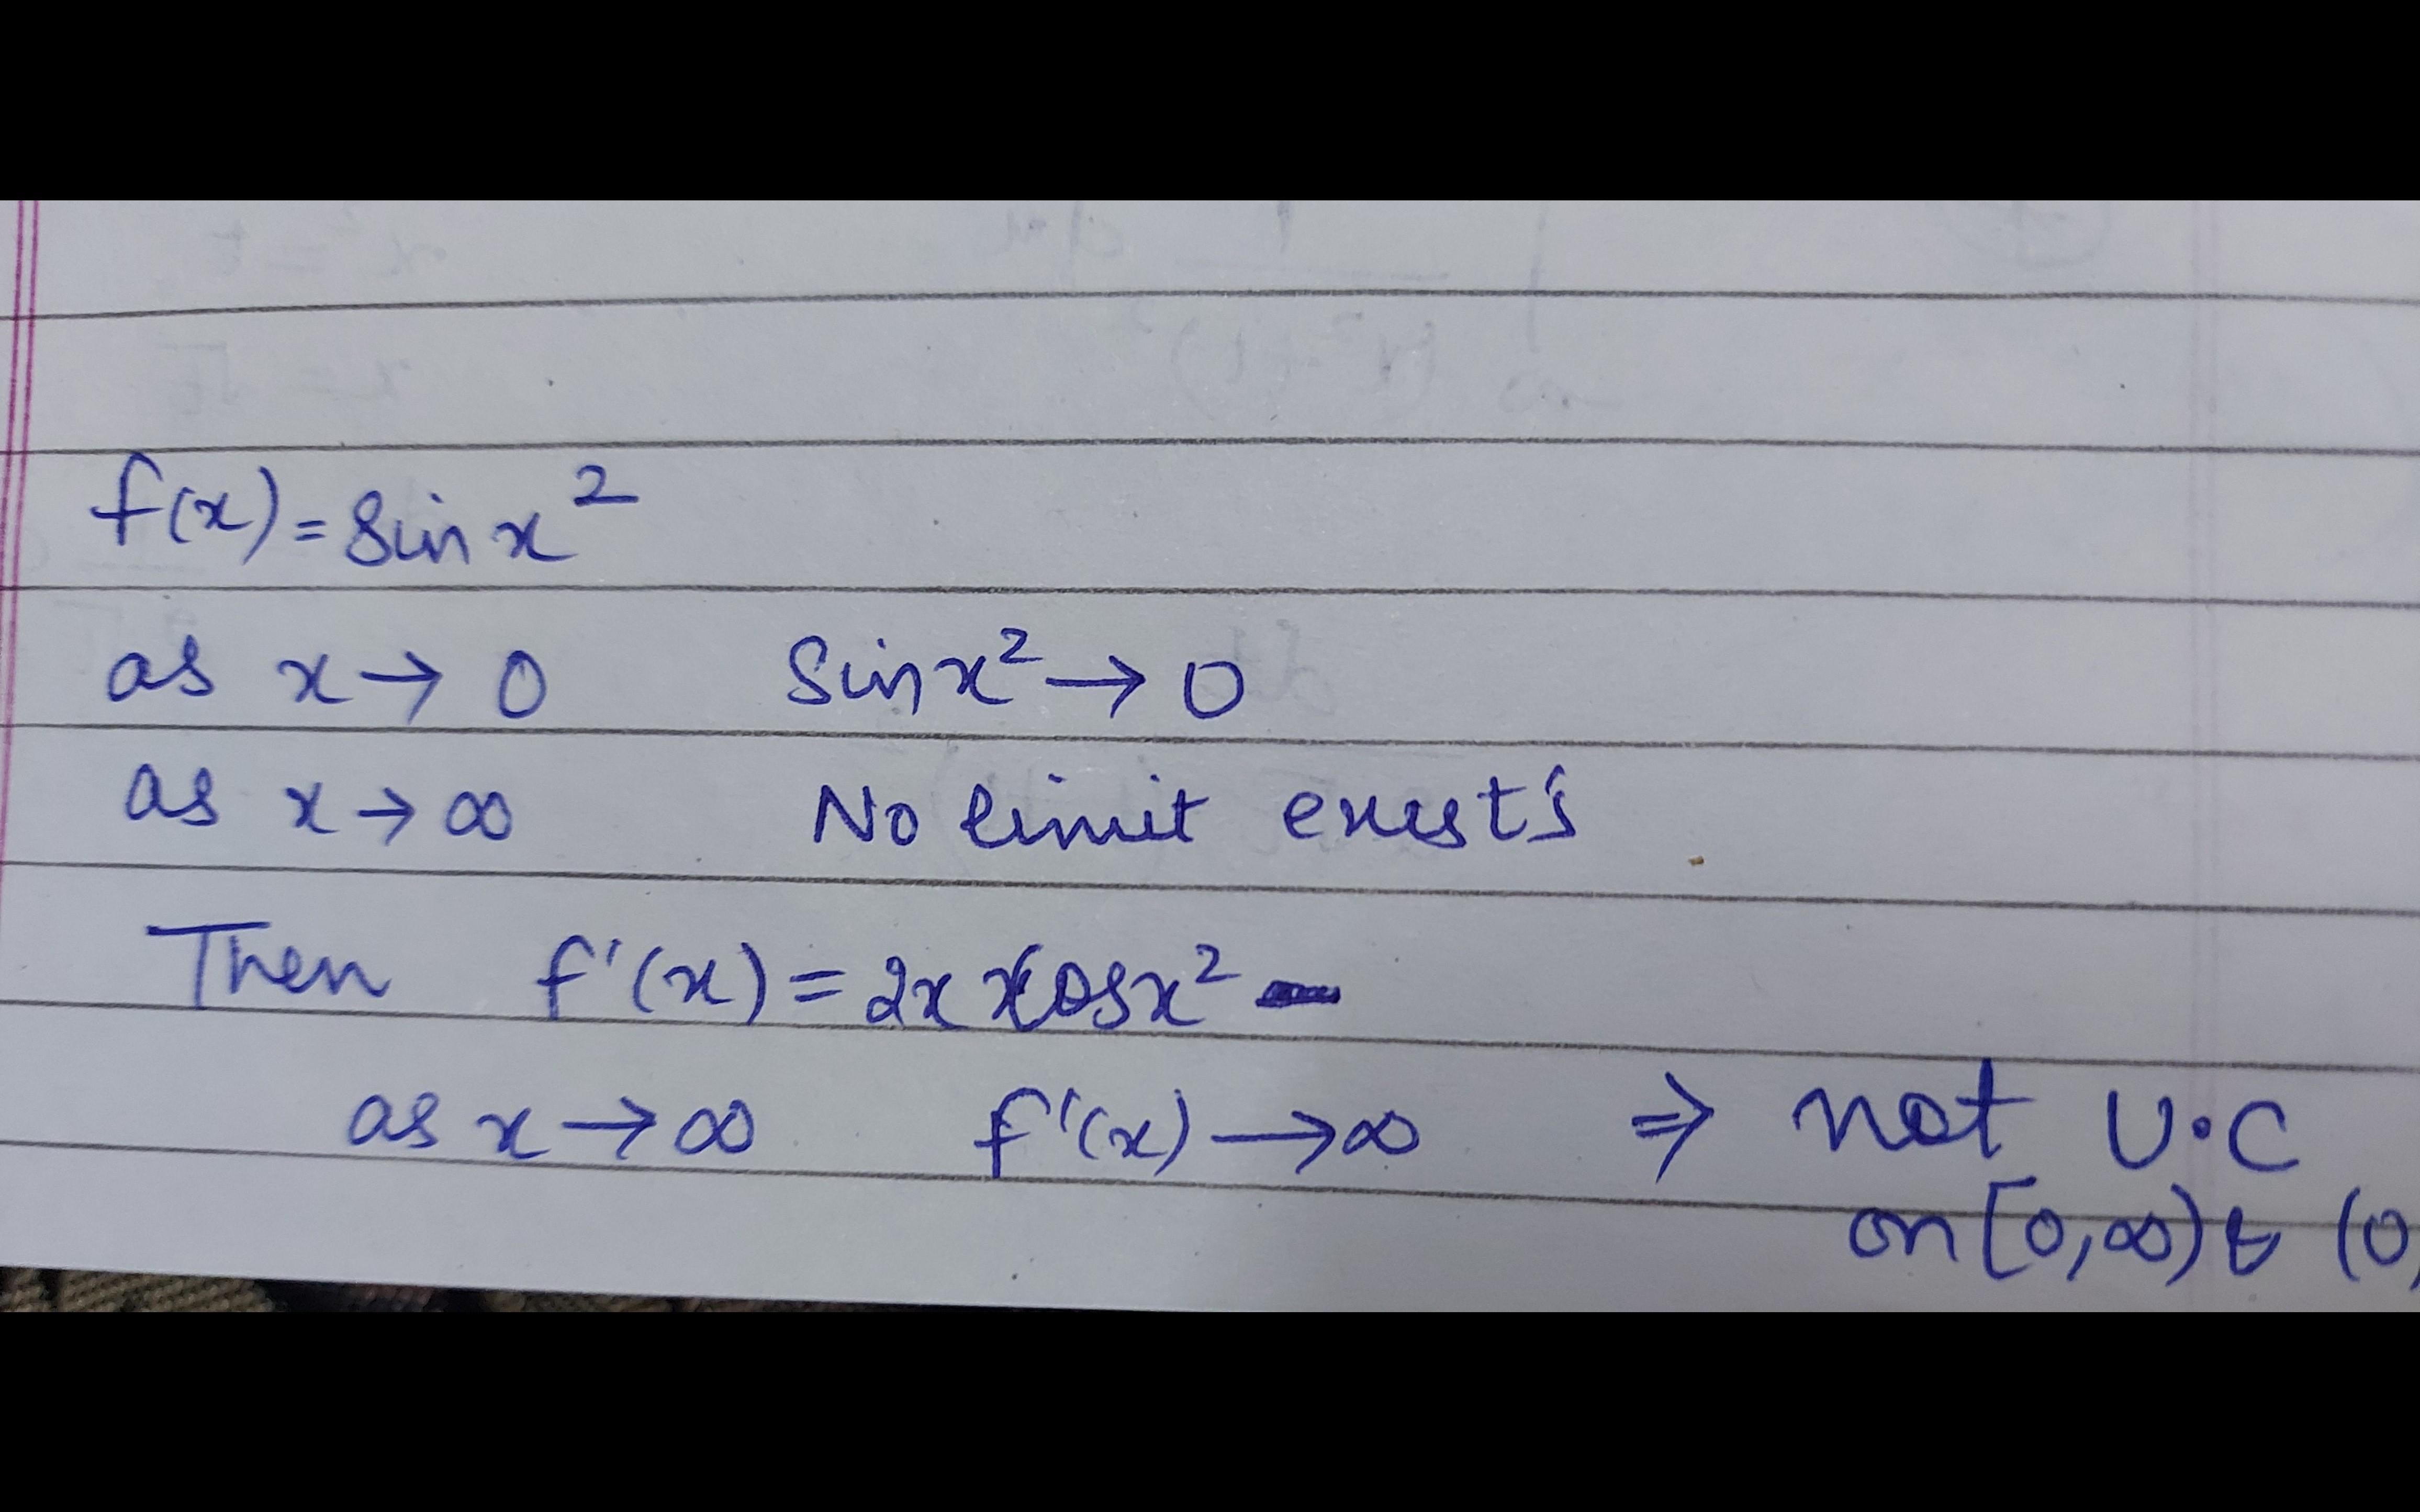 f(x) = Sin x²
as x → 0 Sin x² → 0
as x → ∞ No limit exists
Then f'(x) = 2x × cos x² -
as x → ∞ f'(x) → ∞ ⇒ not U.C
on [0, ∞) & (0,